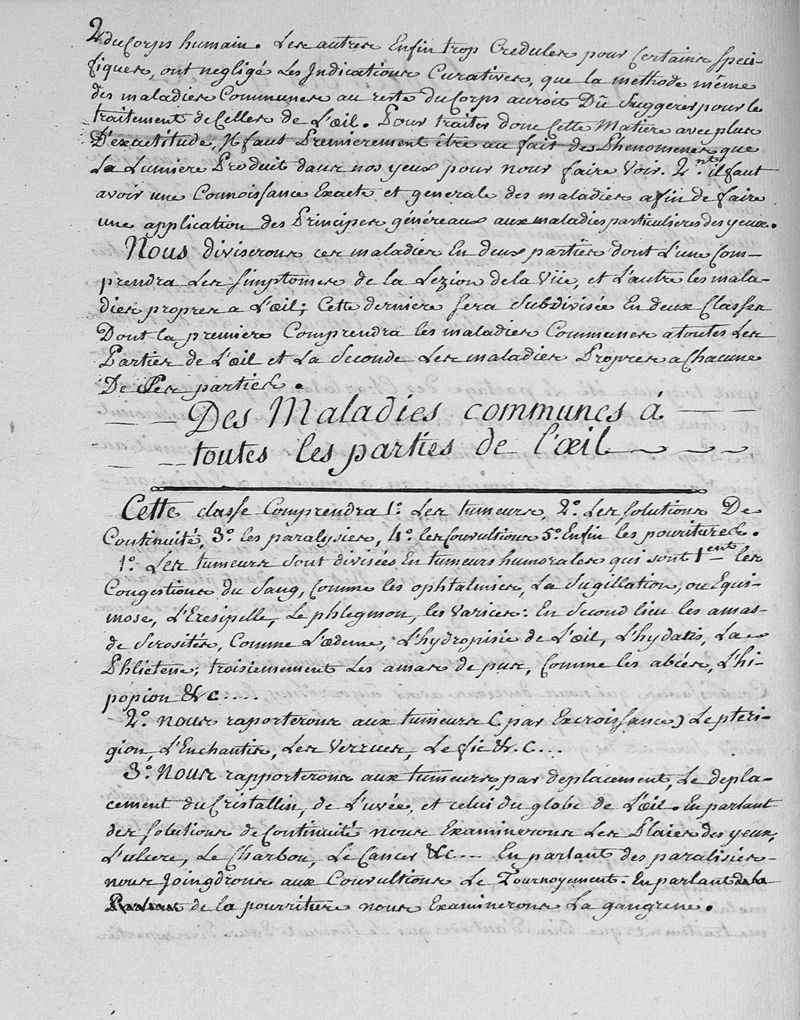 2
du Corps humain. Les autres Enfin trop Credules pour Certains speci-
fiques, ont negligé Les Indications Curatives, que la methode même
des maladies Communes au reste du Corps auroit Dû Suggerer pour le
traitement de Celles de L'œil. Pour traiter donc Cette Matiere avec plus
D'exactitude, Il faut Premierement être au fait des Phenomenes que
La Lumiere Produit dans nos yeux pour nous faire voir. 2.nt il faut
avoir une Connoissance Exacte et generale des maladies afin de faire
une application des Principes généreaux aux maladies particulieres des yeux.
Nous diviserons ces maladies En deux parties dont L'une Com-
prendra Les simptomes de la Lezion de la Vüe, et L'autre les mala-
dies propres a L'œil; Cette derniere sera Subdivisée En deux Classes
Dont la premiere Comprendra les maladies Communes a toutes Les
Parties de L'œil et La Seconde Les maladies Propres a Chacune
De Ses parties.
Des Maladies communes á
toutes les parties de l'œil
Cette classe Comprendra 1.° Les tumeurs, 2.° Les solutions De
Continuité, 3.° les paralysies, 4.° les Convultions 5.° Enfin les pouritures.
1.° Les tumeurs sont divisées En tumeurs humorales qui sont 1.ent les
Congestions du Sang, Comme les ophtalmies, La Sugillation, ou Equi-
mose, L'Eresipelle, Le phlegmon, les Varices: En Second lieu les amas
de Serosités, Comme L'œdeme, L'hydropisie de L'œil, L'hydatis, La
Phlictene; troisiemement Les amas de pus, Comme les abcés, L'hi-
popion &c....
2.° nous raporterons aux tumeurs (par Excroissance) Le pteri-
gion, L'Enchantis, Les Verrues, Le fic &.c...
3.° Nous rapporterons aux tumeurs par deplacement, Le depla-
cement du Cristallin, de L'uvée, et celui du globe de L'œil. En parlant
des solutions de Continuité nous Examinerons Les Plaies des yeux,
L'ulcere, Le Charbon, Le Cancer &c... En parlant des paralisies
nous Joingdrons aux Convultions Le Tournoyement. En parlant
de la pourriture nous Examinerons La gangrene.